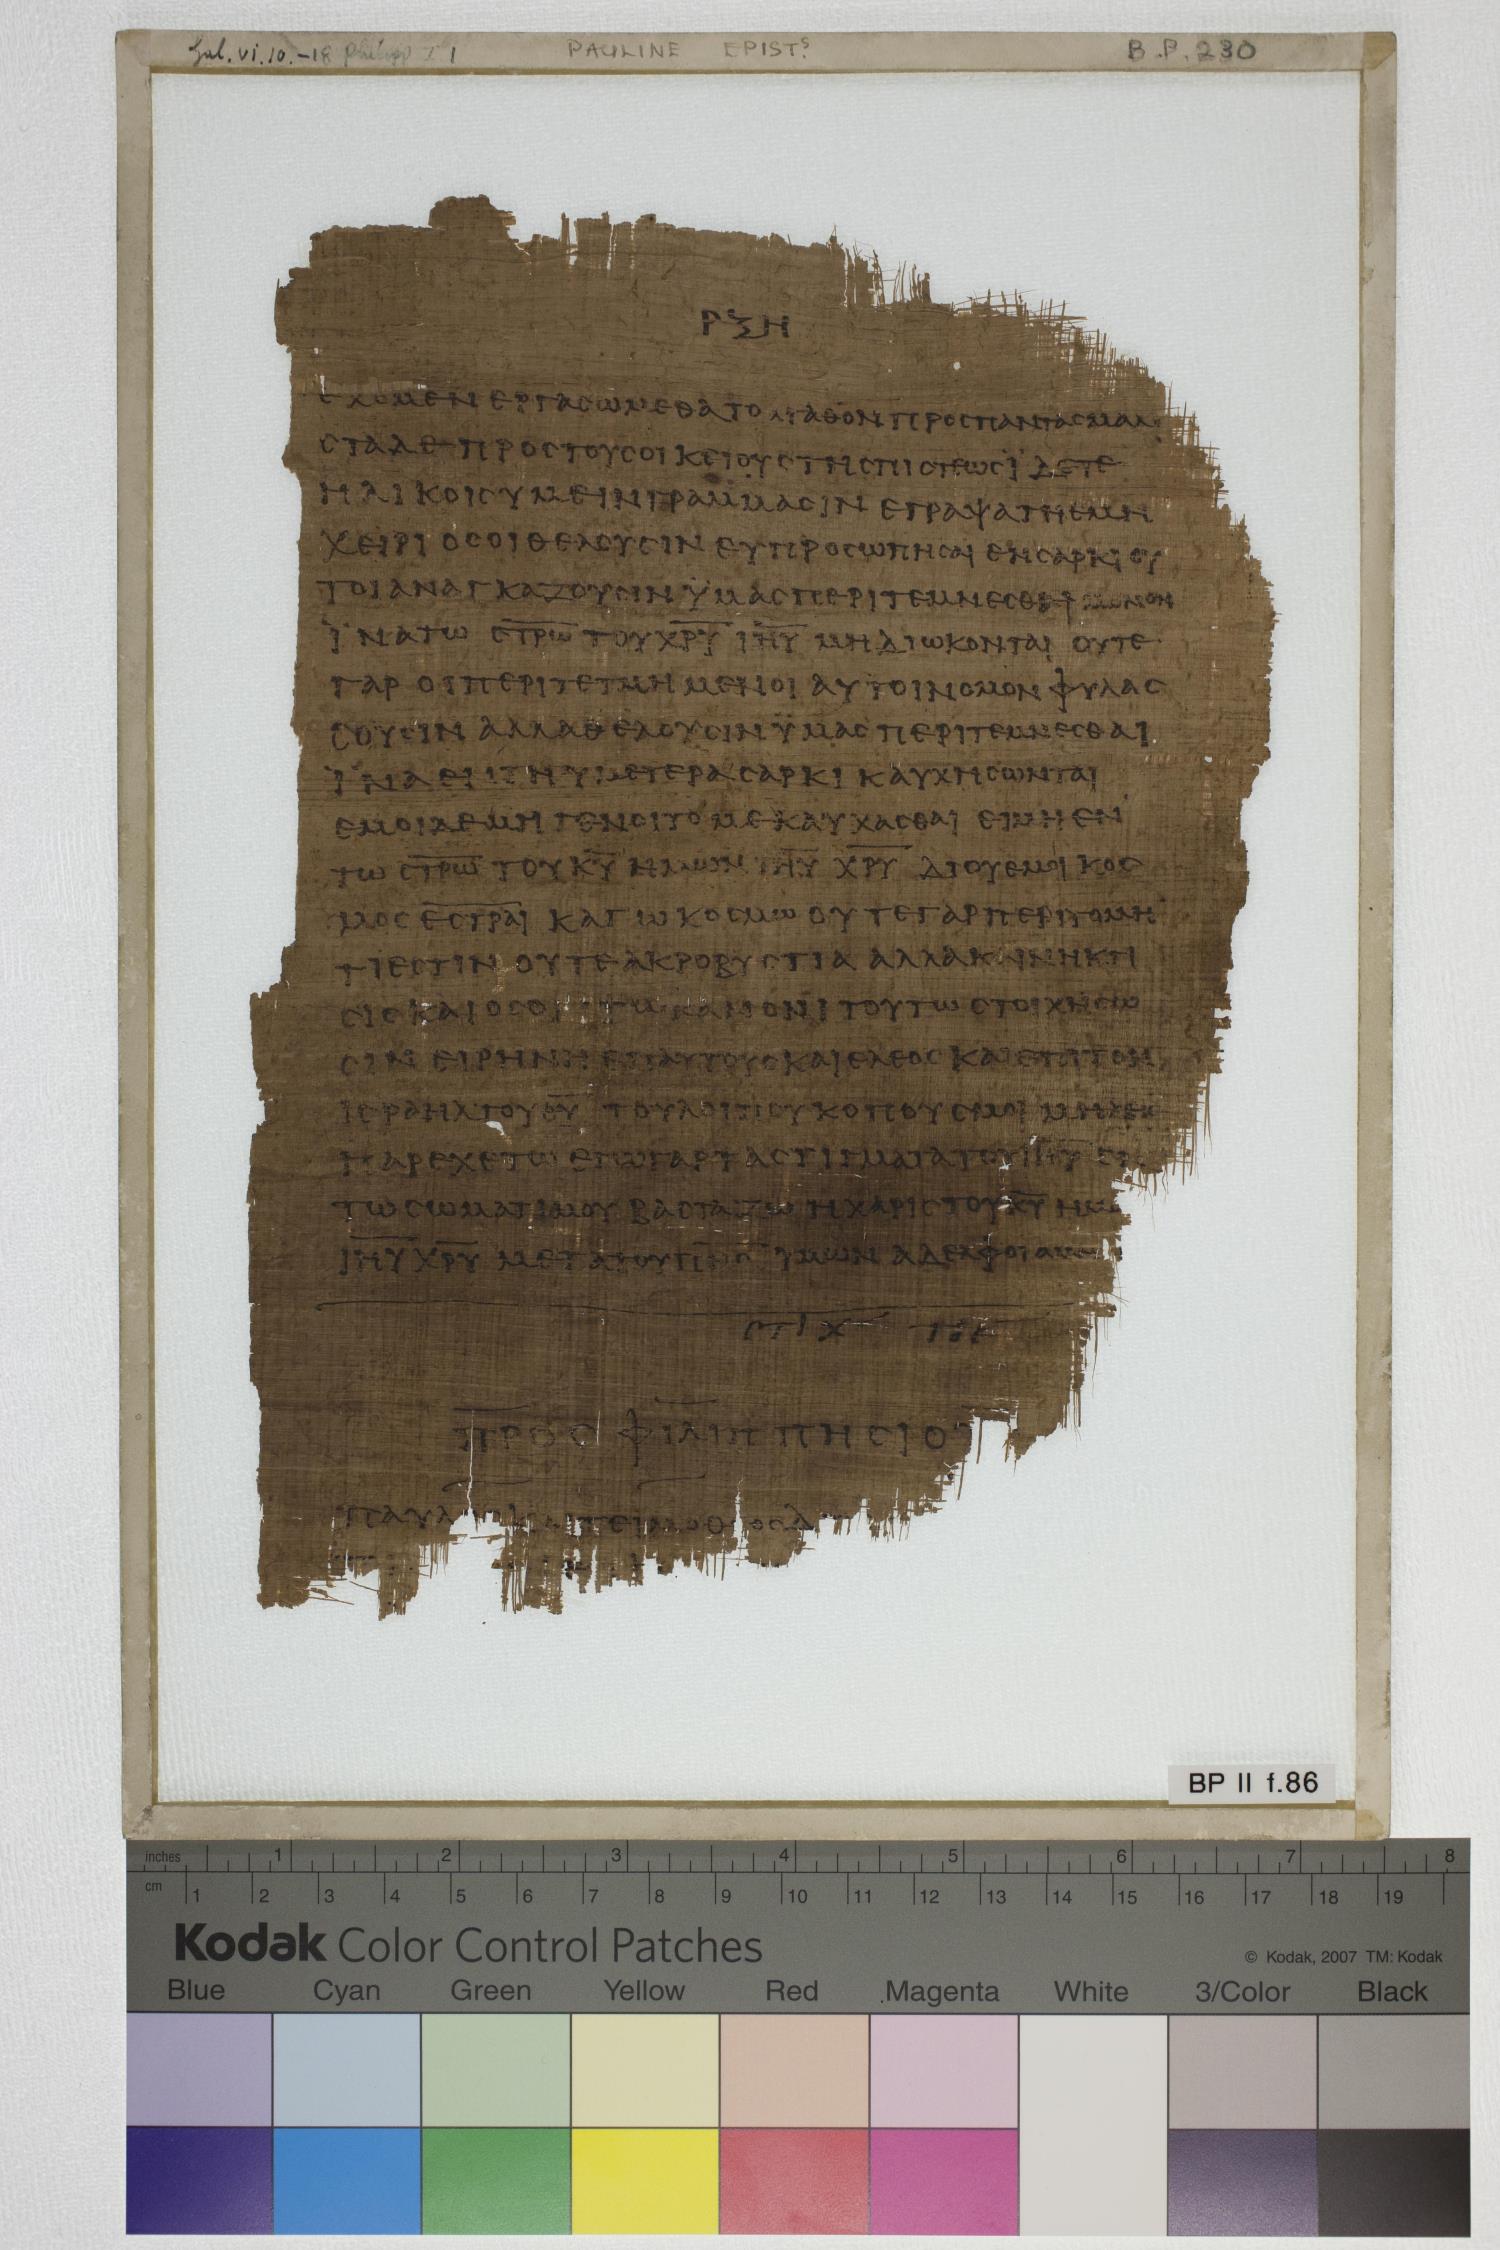 Gal. vi. 10.-18 Philipp I 1 PAULINE EPISTS. B.P. 230
ΡΞΗ
ΕΧΟΜΕΝ ΕΡΓΑΣΩΜΕΘΑ ΤΟ ΑΓΑΘΟΝ ΠΡΟΣ ΠΑΝΤΑΣ ΜΑΛΙ
ΣΤΑ ΔΕ ΠΡΟΣ ΤΟΥΣ ΟΙΚΕΙΟΥΣ ΤΗΣ ΠΙΣΤΕΩΣ ΪΔΕΤΕ
ΗΛΙΚΟΙΣ ΥΜΕΙΝ ΓΡΑΜΜΑΣΙΝ ΕΓΡΑΨΑ ΤΗ ΕΜΗ
ΧΕΙΡΙ ΟΣΟΙ ΘΕΛΟΥΣΙΝ ΕΥΠΡΟΣΩΠΗΣΑΙ ΕΝ ΣΑΡΚΙ ΟΥ
ΤΟΙ ΑΝΑΓΚΑΖΟΥΣΙΝ ΫΜΑΣ ΠΕΡΙΤΕΜΝΕΣΘΕ ΜΟΝΟΝ
ΪΝΑ ΤΩ ΣΤΡΩ ΤΟΥ ΧΡΥ ΙΗΥ ΜΗ ΔΙΩΚΟΝΤΑΙ ΟΥΤΕ
ΓΑΡ ΟΙ ΠΕΡΙΤΕΤΜΗΜΕΝΟΙ ΑΥΤΟΙ ΝΟΜΟΝ ΦΥΛΑΣ
ΣΟΥΣΙΝ ΑΛΛΑ ΘΕΛΟΥΣΙΝ ΫΜΑΣ ΠΕΡΙΤΕΜΝΕΣΘΑΙ
ΪΝΑ ΕΝ ΤΗ ΥΜΕΤΕΡΑ ΣΑΡΚΙ ΚΑΥΧΗΣΩΝΤΑΙ
ΕΜΟΙ ΔΕ ΜΗ ΓΕΝΟΙΤΟ ΜΕ ΚΑΥΧΑΣΘΑΙ ΕΙ ΜΗ ΕΝ
ΤΩ ΣΤΡΩ ΤΟΥ ΚΥ ΗΜΩΝ ΙΗΥ ΧΡΥ ΔΙ ΟΥ ΕΜΟΙ ΚΟΣ
ΜΟΣ ΕΣΤΡΑΙ ΚΑΓΩ ΚΟΣΜΩ ΟΥΤΕ ΓΑΡ ΠΕΡΙΤΟΜΗ
ΤΙ ΕΣΤΙΝ ΟΥΤΕ ΑΚΡΟΒΥΣΤΙΑ ΑΛΛΑ ΚΑΙΝΗ ΚΤΙ
ΣΙΣ ΚΑΙ ΟΣΟΙ ΤΩ ΚΑΝΟΝΙ ΤΟΥΤΩ ΣΤΟΙΧΗΣΩ
ΣΙΝ ΕΙΡΗΝΗ ΕΠ ΑΥΤΟΥΣ ΚΑΙ ΕΛΕΟΣ ΚΑΙ ΕΠΙ ΤΟΝ
ΙΣΡΑΗΛ ΤΟΥ ΘΥ ΤΟΥ ΛΟΙΠΟΥ ΚΟΠΟΥΣ ΜΟΙ ΜΗΔΕΙΣ
ΠΑΡΕΧΕΤΩ ΕΓΩ ΓΑΡ ΤΑ ΣΤΙΓΜΑΤΑ ΤΟΥ ΙΗΥ ΕΝ
ΤΩ ΣΩΜΑΤΙ ΜΟΥ ΒΑΣΤΑΖΩ Η ΧΑΡΙΣ ΤΟΥ ΚΥ ΗΜΩ
ΙΗΥ ΧΡΥ ΜΕΤΑ ΤΟΥ ΠΝΣ ΥΜΩΝ ΑΔΕΛΦΟΙ ΑΜΗ
ΣΤΙΧ ΤΟΕ
ΠΡΟΣ ΦΙΛΙΠΠΗΣΙΟΥ
ΠΑΥΛΟΣ ΚΑΙ ΤΕΙΜΟΘΕΟΣ Δ
BP II f.86
inches 1 2 3 4 5 6 7 8
cm 1 2 3 4 5 6 7 8 9 10 11 12 13 14 15 16 17 18 19
Kodak Color Control Patches © Kodak, 2007 TM: Kodak
Blue Cyan Green Yellow Red Magenta White 3/Color Black